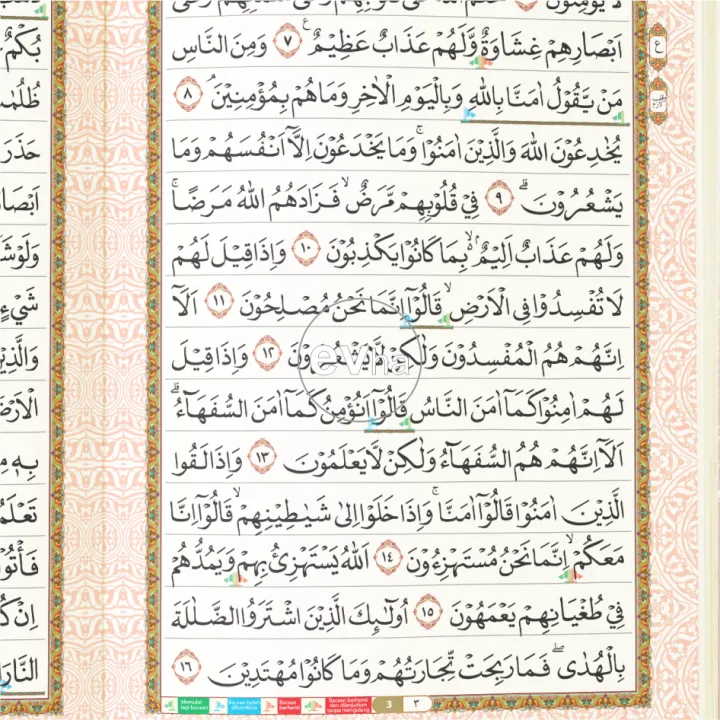 اَبْصَارِهِمْ غِشَاوَةٌ وَّلَهُمْ عَذَابٌ عَظِيْمٌ ࣖ ٧ وَمِنَ النَّاسِ
مَنْ يَّقُوْلُ اٰمَنَّا بِاللّٰهِ وَبِالْيَوْمِ الْاٰخِرِ وَمَا هُمْ بِمُؤْمِنِيْنَۘ ٨
يُخٰدِعُوْنَ اللّٰهَ وَالَّذِيْنَ اٰمَنُوْا ۚ وَمَا يَخْدَعُوْنَ اِلَّآ اَنْفُسَهُمْ وَمَا
يَشْعُرُوْنَۗ ٩ فِيْ قُلُوْبِهِمْ مَّرَضٌۙ فَزَادَهُمُ اللّٰهُ مَرَضًاۚ
وَلَهُمْ عَذَابٌ اَلِيْمٌۢ ەۙ بِمَا كَانُوْا يَكْذِبُوْنَ ١٠ وَاِذَا قِيْلَ لَهُمْ
لَا تُفْسِدُوْا فِى الْاَرْضِۙ قَالُوْٓا اِنَّمَا نَحْنُ مُصْلِحُوْنَ ١١ اَلَآ
اِنَّهُمْ هُمُ الْمُفْسِدُوْنَ وَلٰكِنْ لَّا يَشْعُرُوْنَ ١٢ وَاِذَا قِيْلَ
لَهُمْ اٰمِنُوْا كَمَآ اٰمَنَ النَّاسُ قَالُوْٓا اَنُؤْمِنُ كَمَآ اٰمَنَ السُّفَهَاۤءُۗ
اَلَآ اِنَّهُمْ هُمُ السُّفَهَاۤءُ وَلٰكِنْ لَّا يَعْلَمُوْنَ ١٣ وَاِذَا لَقُوا
الَّذِيْنَ اٰمَنُوْا قَالُوْٓا اٰمَنَّا ۚ وَاِذَا خَلَوْا اِلٰى شَيٰطِيْنِهِمْۙ قَالُوْٓا اِنَّا
مَعَكُمْۙ اِنَّمَا نَحْنُ مُسْتَهْزِءُوْنَ ١٤ اَللّٰهُ يَسْتَهْزِئُ بِهِمْ وَيَمُدُّهُمْ
فِيْ طُغْيَانِهِمْ يَعْمَهُوْنَ ١٥ اُولٰۤىِٕكَ الَّذِيْنَ اشْتَرَوُا الضَّلٰلَةَ
بِالْهُدٰىۖ فَمَا رَبِحَتْ تِّجَارَتُهُمْ وَمَا كَانُوْا مُهْتَدِيْنَ ١٦
3 ٣
ع
evha